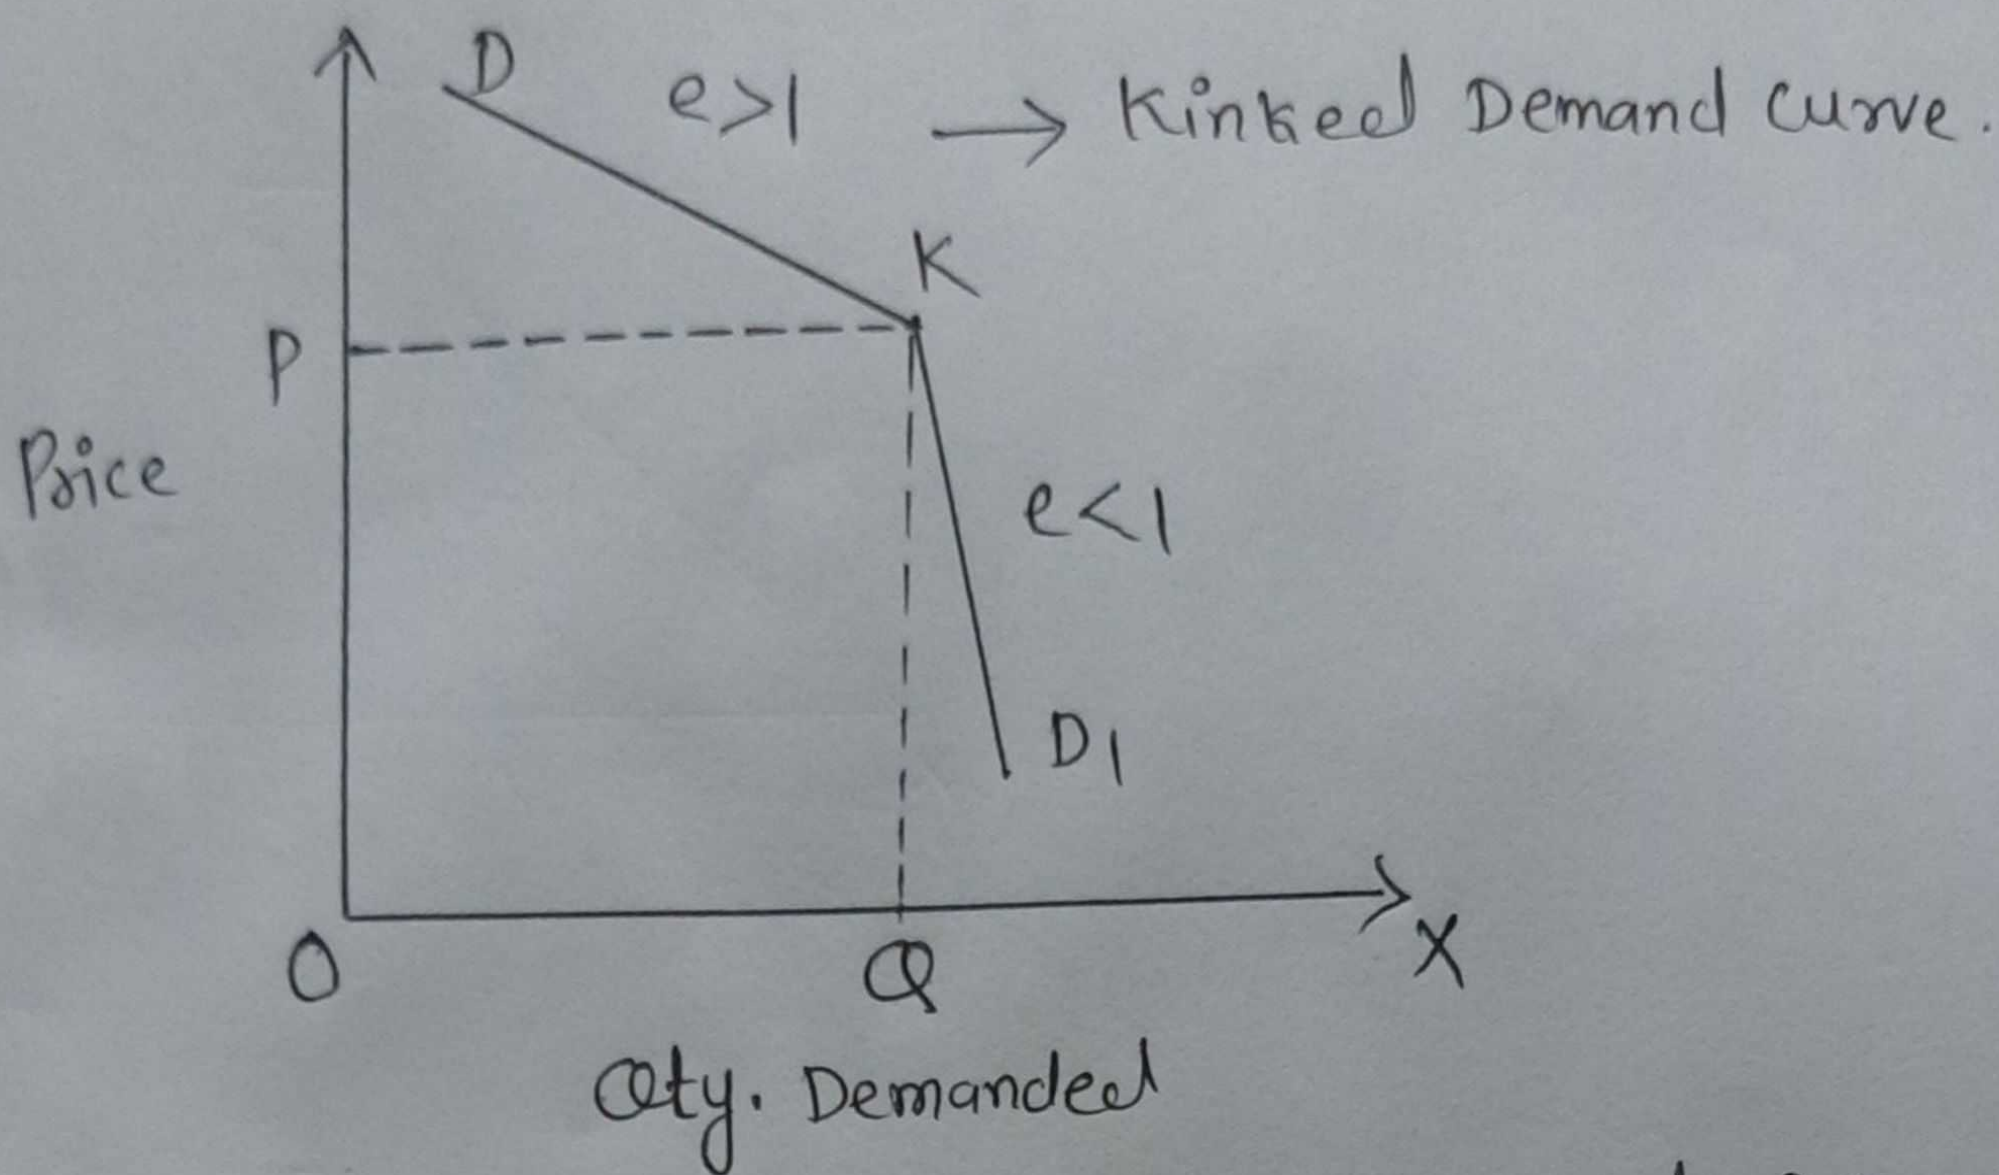 D e>1 → Kinked Demand curve.
K
P
Price
e<1
D1
O Q X
Qty. Demanded